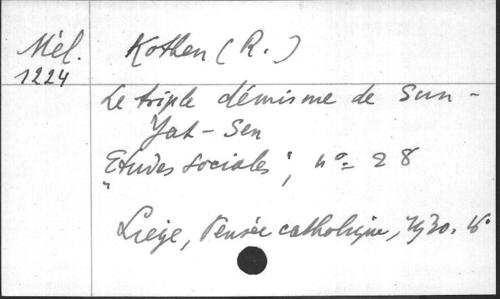 Mél. Kothen (R.)
1224
Le triple démisme de Sun-
Yat-Sen
"Etudes sociales", nº 28
Liège, Pensée catholique, 1930. 16º